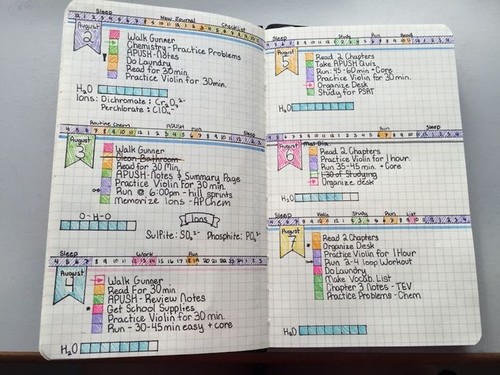 Sleep New Journal Checklist
August
2
Walk Gunner
Chemistry-Practice Problems
APUSH-Notes
Do Laundry
Read for 30 min.
Practice Violin for 30 min.
H₂O
Ions: Dichromate: Cr₂O₇²⁻
Perchlorate: ClO₄⁻
Routine Chem APUSH Run Sleep
August
3
Walk Gunner
Clean Bathroom
Read for 30 Min.
APUSH-Notes & Summary Page
Practice Violin for 30 min
Run @ 6:00pm - hill sprints
Memorize Ions - APChem
O-H-O
Ions
Sulfite: SO₃²⁻ Phosphite: PO₃³⁻
Sleep Work Run
4 5 6 7 8 9 10 11 12 13 14 15 16 17 18 19 20 21 22 23 24 1 2 3
August
4
Walk Gunner
Read For 30 min
APUSH-Review Notes
Get School Supplies
Practice Violin for 30 min.
Run - 30-45 min easy + core
H₂O
Sleep Study Run Read
August
5
Read 2 Chapters
Take APUSH Quiz
Run: 45-60 min + Core
Practice Violin for 30 min.
Organize Desk
Study for PSAT
H₂O
Run Sleep
August
6
Read 2 Chapters
Practice Violin for 1 hour
Run 35-45 min. + Core
1:30 of Studying
Organize desk
H₂O
Sleep Study Run List
August
7
Read 2 Chapters
Organize Desk
Practice Violin for 1 Hour
Run 2-4 loop Workout
Do Laundry
Make Vocab. List
Chapter 3 Notes - TEV
Practice Problems - Chem
H₂O